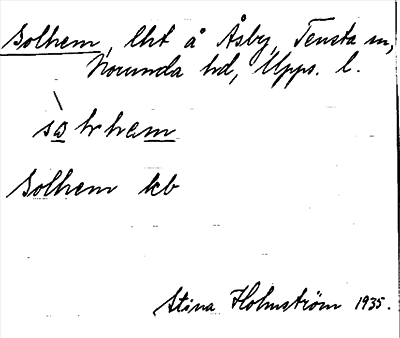 Solhem, lht å Åsby, Tensta sn,
Norunda hd, Upps. l.
Solhem kb
Stina Holmström 1935.